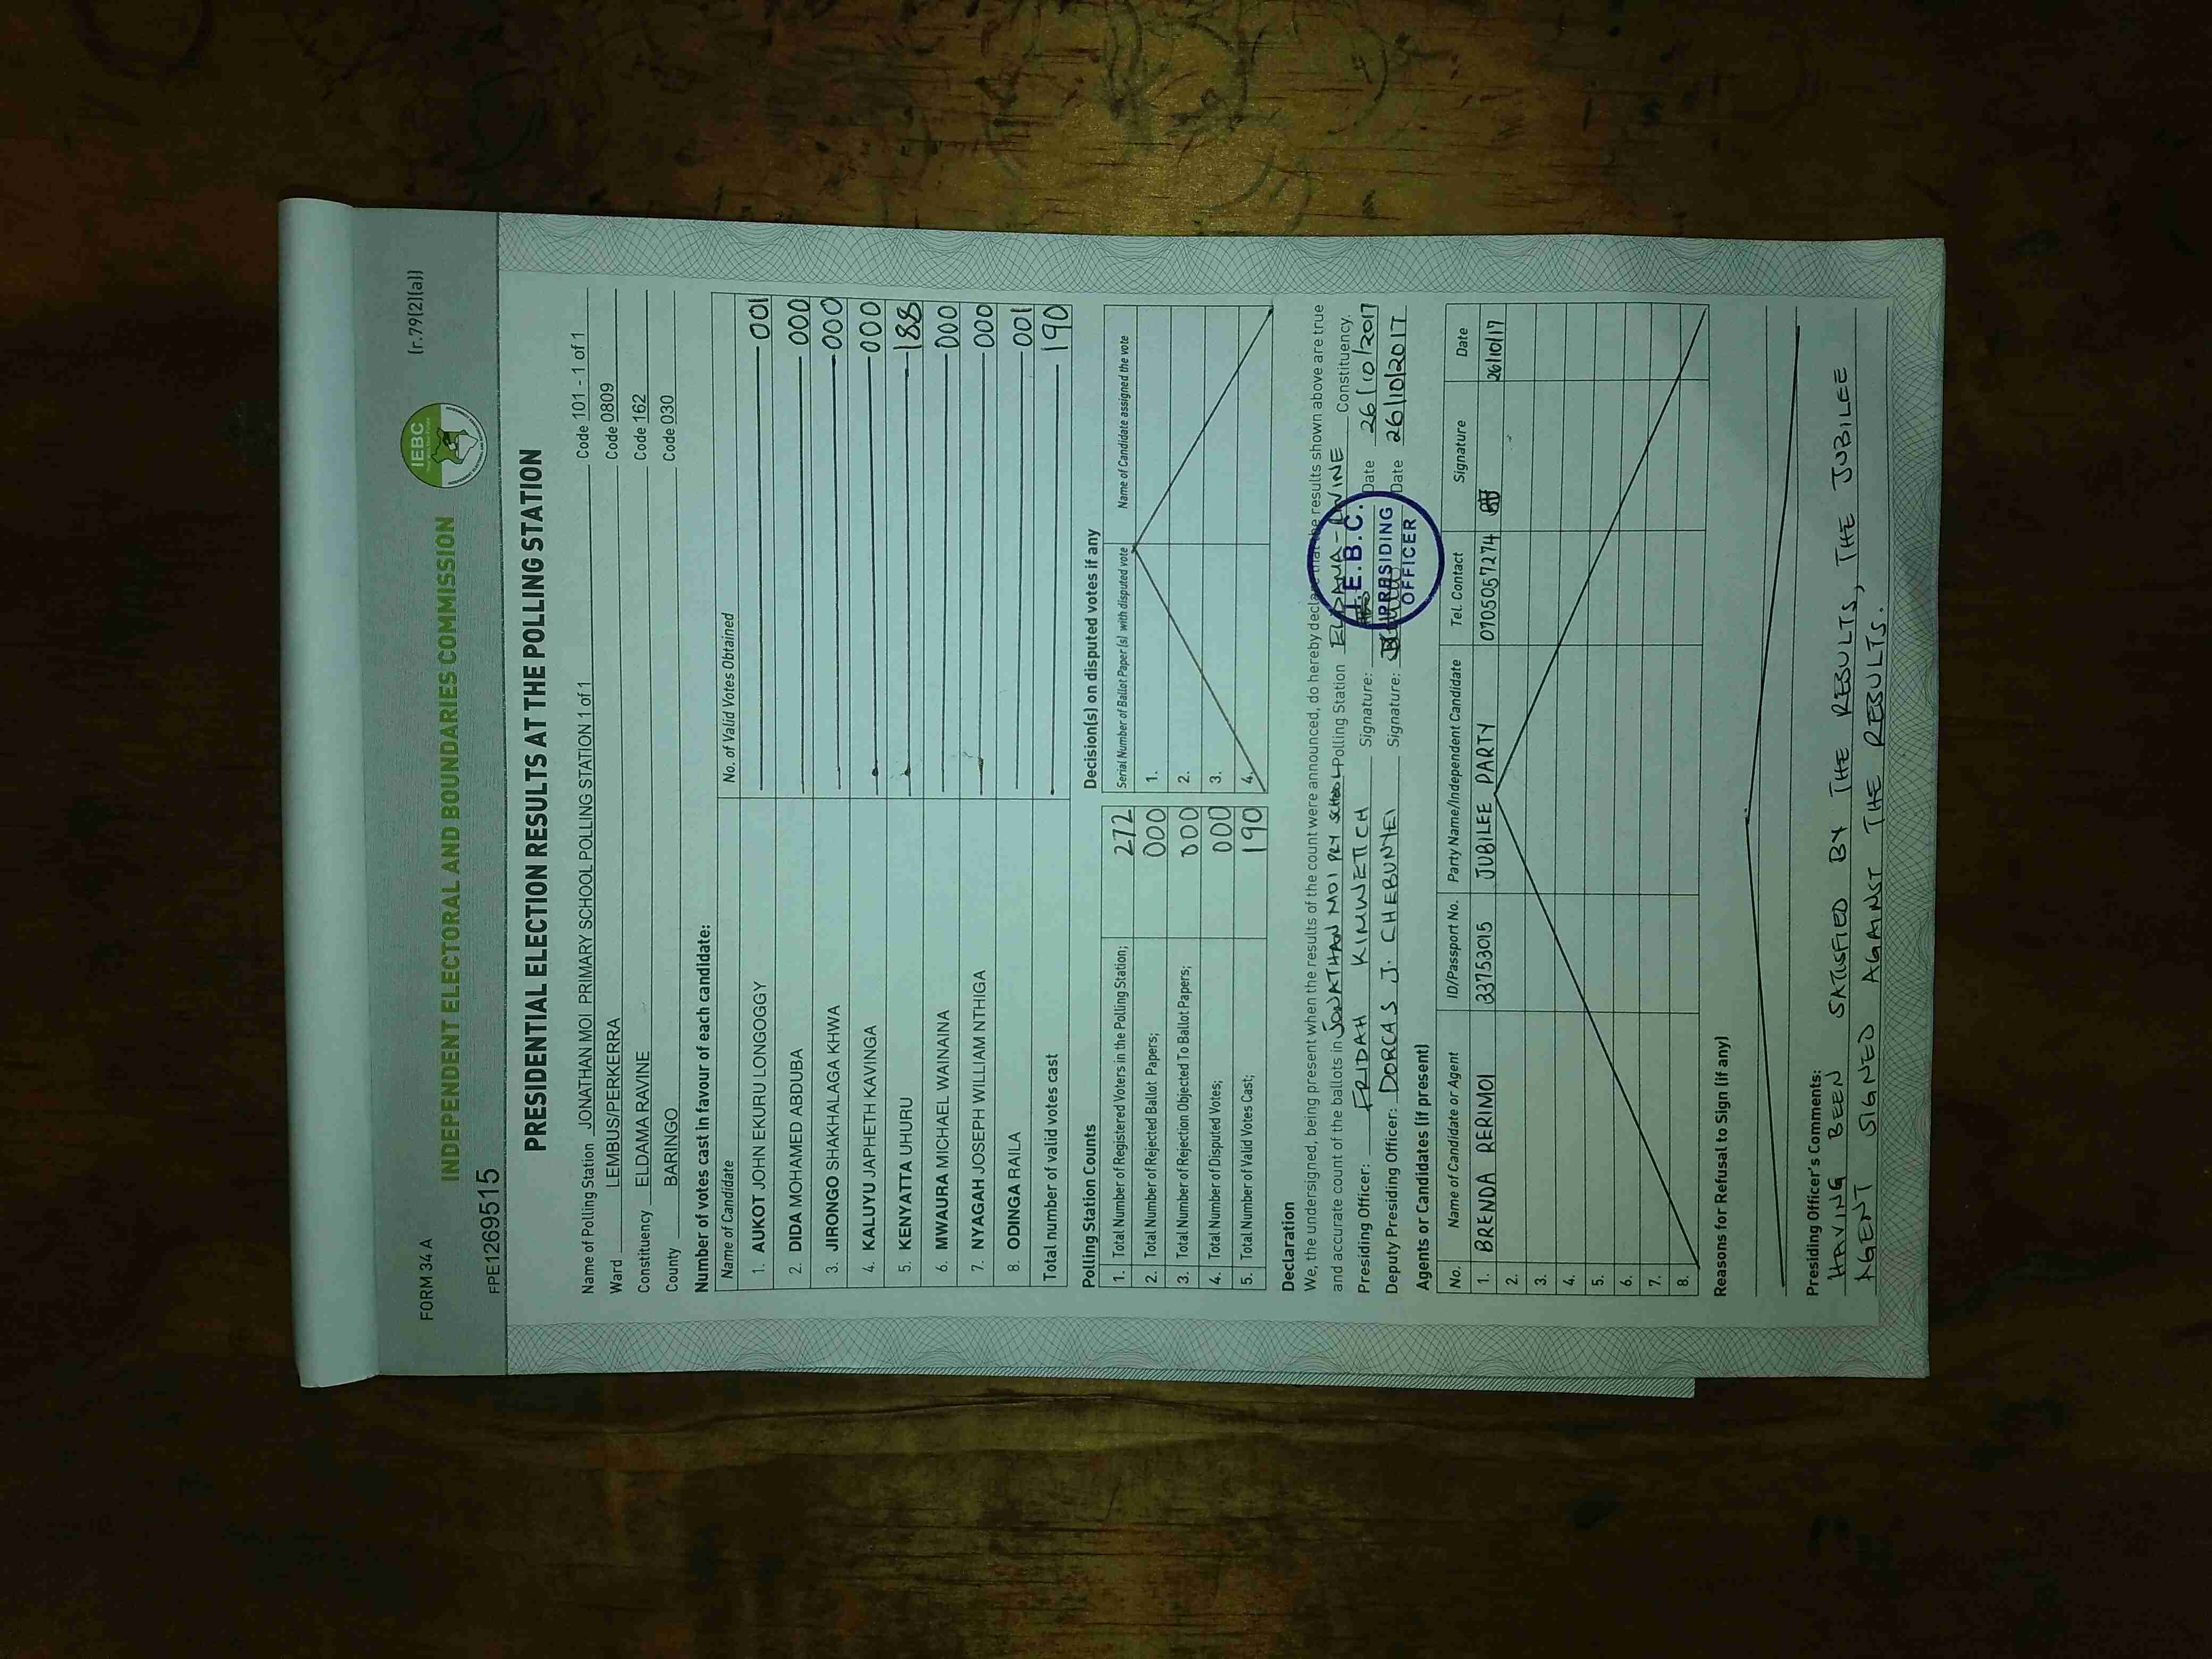 FORM 34 A
(r.79(2)(a))
INDEPENDENT ELECTORAL AND BOUNDARIES COMMISSION
IEBC
FPE1269515
PRESIDENTIAL ELECTION RESULTS AT THE POLLING STATION
Name of Polling Station JONATHAN MOI PRIMARY SCHOOL POLLING STATION 1 of 1 Code 101 - 1 of 1
Ward LEMBUS/PERKERRA Code 0809
Constituency ELDAMA RAVINE Code 162
County BARINGO Code 030
Number of votes cast in favour of each candidate:
Name of Candidate No. of Valid Votes Obtained
1. AUKOT JOHN EKURU LONGOGGY 001
2. DIDA MOHAMED ABDUBA 000
3. JIRONGO SHAKHALAGA KHWA 000
4. KALUYU JAPHETH KAVINGA 000
5. KENYATTA UHURU 188
6. MWAURA MICHAEL WAINAINA 000
7. NYAGAH JOSEPH WILLIAM NTHIGA 000
8. ODINGA RAILA 001
Total number of valid votes cast 190
Polling Station Counts
1. Total Number of Registered Voters in the Polling Station; 272
2. Total Number of Rejected Ballot Papers; 000
3. Total Number of Rejection Objected To Ballot Papers; 000
4. Total Number of Disputed Votes; 000
5. Total Number of Valid Votes Cast; 190
Decision(s) on disputed votes if any
Serial Number of Ballot Paper (s) with disputed vote Name of Candidate assigned the vote
1.
2.
3.
4.
Declaration
We, the undersigned, being present when the results of the count were announced, do hereby declare that the results shown above are true
and accurate count of the ballots in JONATHAN MOI PRY SCHOOL Polling Station ELDAMA-RAVINE Constituency.
Presiding Officer: FRIDAH KIMWETICH Signature: Date 26/10/2017
Deputy Presiding Officer: DORCAS J. CHEBUNYEI Signature: Date 26/10/2017
I.E.B.C.
PRESIDING
OFFICER
Agents or Candidates (if present)
No. Name of Candidate or Agent ID/Passport No. Party Name/Independent Candidate Tel. Contact Signature Date
1. BRENDA RERIMOI 33753015 JUBILEE PARTY 0705057274 26/10/17
2.
3.
4.
5.
6.
7.
8.
Reasons for Refusal to Sign (if any)
Presiding Officer's Comments:
HAVING BEEN SATISFIED BY THE RESULTS, THE JUBILEE
AGENT SIGNED AGAINST THE RESULTS.